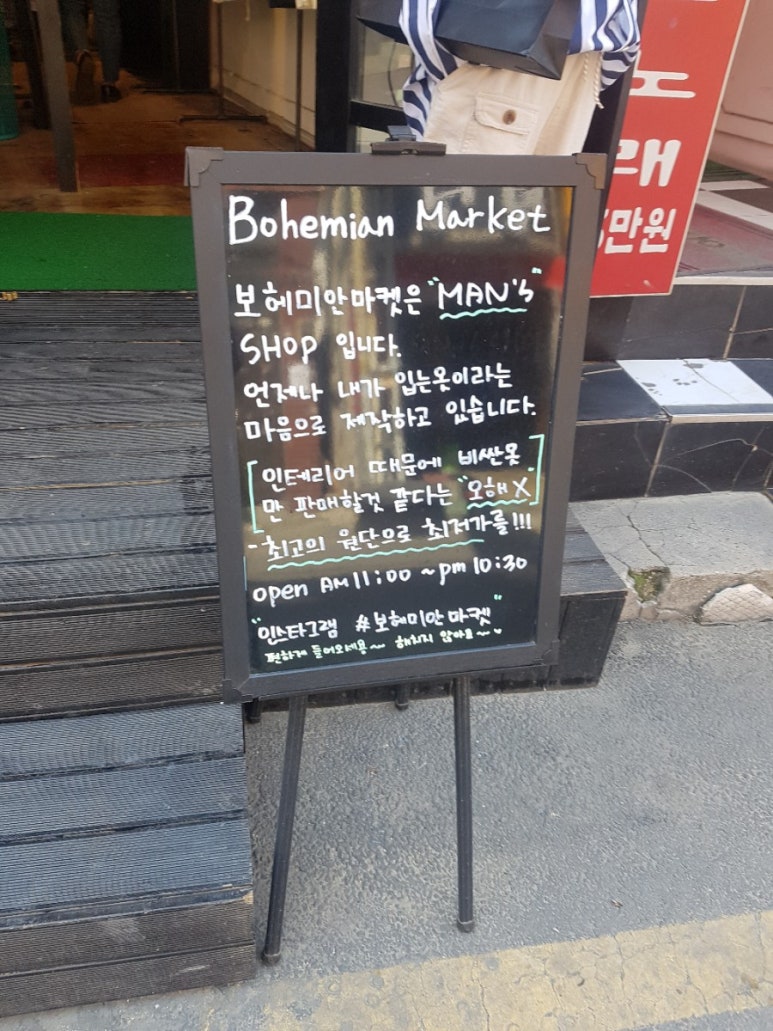 Bohemian Market
보헤미안마켓은 "MAN's"
SHOP 입니다.
언제나 내가 입는옷이라는
마음으로 제작하고 있습니다.
[인테리어 때문에 비싼옷
만 판매할것 같다는 "오해X"]
- 최고의 원단으로 최저가를!!!
open AM 11:00 ~ pm 10:30
"인스타그램 #보헤미안마켓"
편하게 들어오세용~ 해치지 않아요~
만원